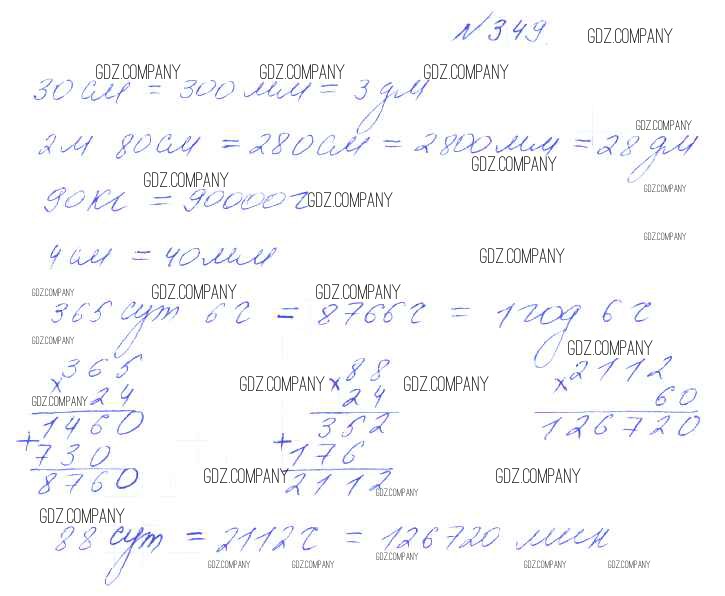 №349. GDZ.COMPANY
GDZ.COMPANY GDZ.COMPANY GDZ.COMPANY
30 см = 300 мм = 3 дм
GDZ.COMPANY
2 м 80 см = 280 см = 2800 мм = 28 дм
GDZ.COMPANY
GDZ.COMPANY GDZ.COMPANY
90 кг = 90000 г GDZ.COMPANY
GDZ.COMPANY
4 см = 40 мм GDZ.COMPANY
GDZ.COMPANY GDZ.COMPANY GDZ.COMPANY
365 сут 6 ч = 8766 ч = 1 год 6 ч
GDZ.COMPANY GDZ.COMPANY
365 88 2112
× 24 × 24 × 60
GDZ.COMPANY GDZ.COMPANY GDZ.COMPANY
1460 352 126720
+ 730 + 176
8760 2112
GDZ.COMPANY GDZ.COMPANY GDZ.COMPANY
GDZ.COMPANY
GDZ.COMPANY
88 сут = 2112 ч = 126720 мин
GDZ.COMPANY GDZ.COMPANY GDZ.COMPANY GDZ.COMPANY GDZ.COMPANY